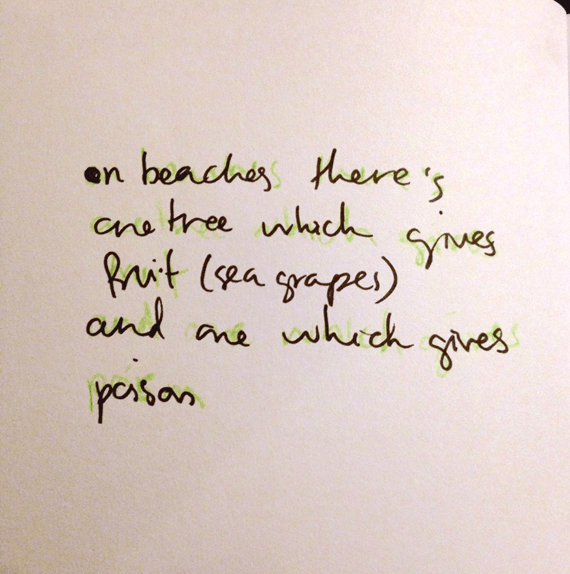 on beaches there's
one tree which gives
fruit (sea grapes)
and one which gives
poison